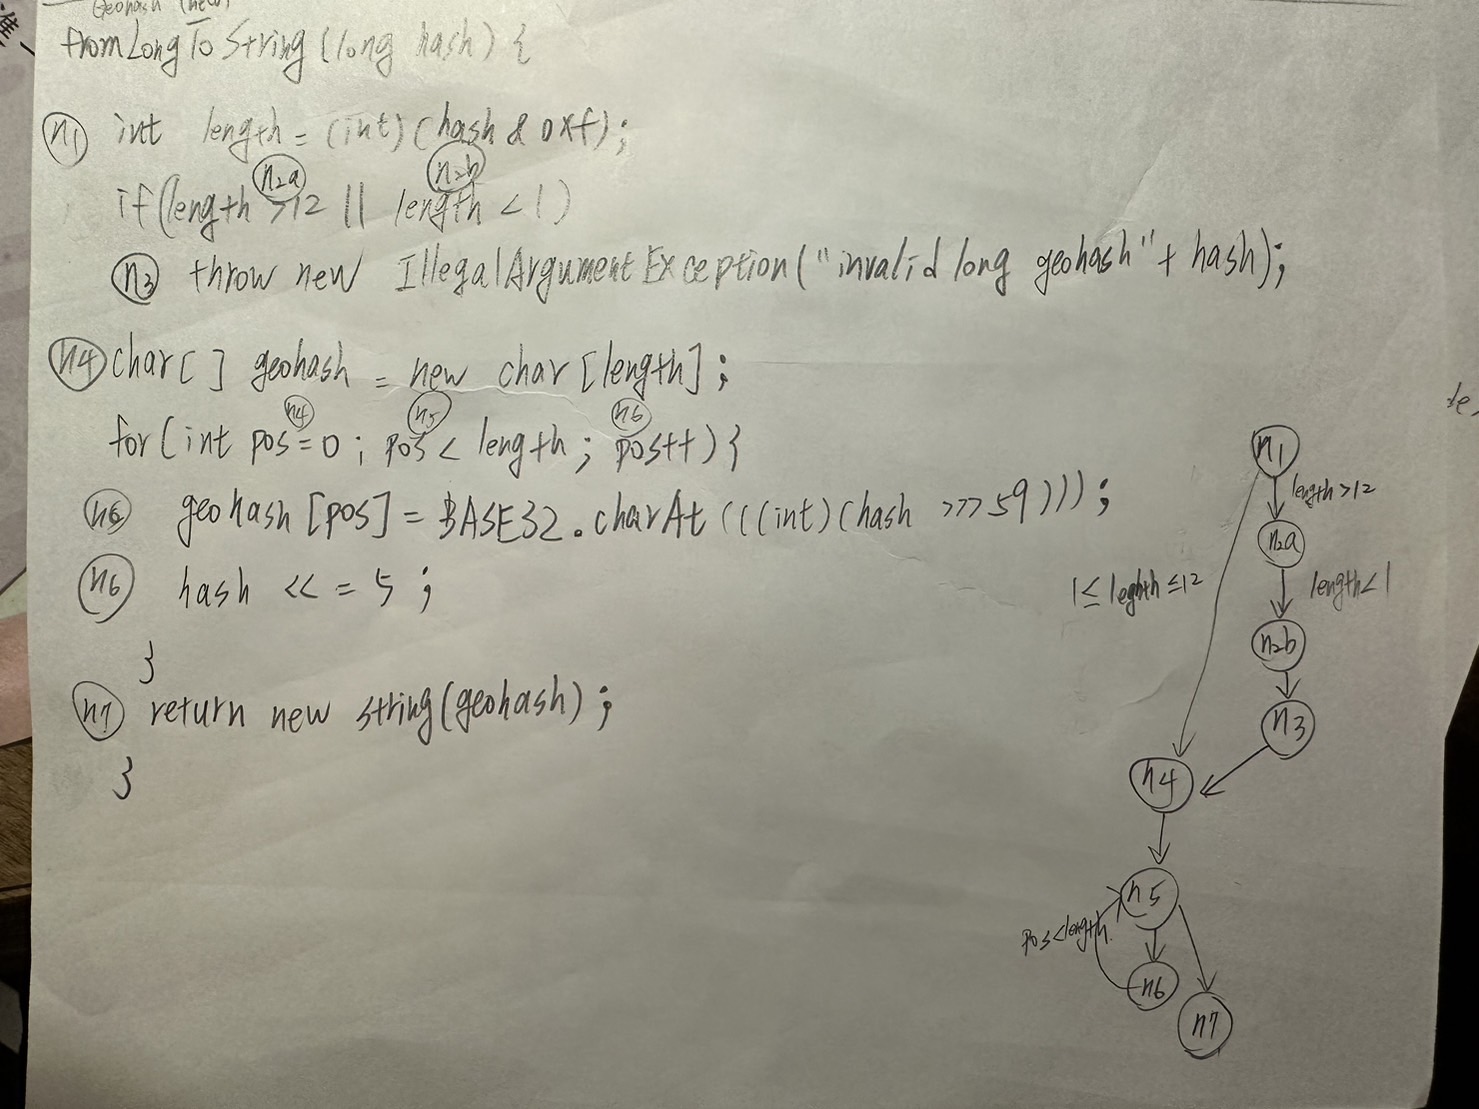 Geohash (new)
fromLongToString (long hash) {
n1 int length = (int) (hash & 0xf);
n2a n2b
if (length >12 || length < 1)
n3 throw new IllegalArgumentException("invalid long geohash" + hash);
n4 char[ ] geohash = new char [length];
n4 n5 n6
for (int pos = 0 ; pos < length ; pos++) {
n6 geohash [pos] = BASE32.charAt (((int) (hash >>> 59)));
n6 hash << = 5 ;
}
n7 return new string (geohash) ;
}
n1
length >12
n2a
1 ≤ leghth ≤ 12
length < 1
n2b
n3
n4
n5
pos < length
n6
n7